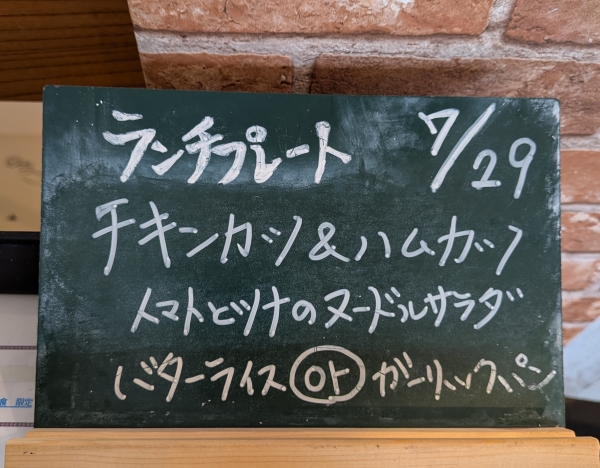 ランチプレート 7/29
チキンカツ&ハムカツ
トマトとツナのヌードルサラダ
バターライス or ガーリックパン
食 限定